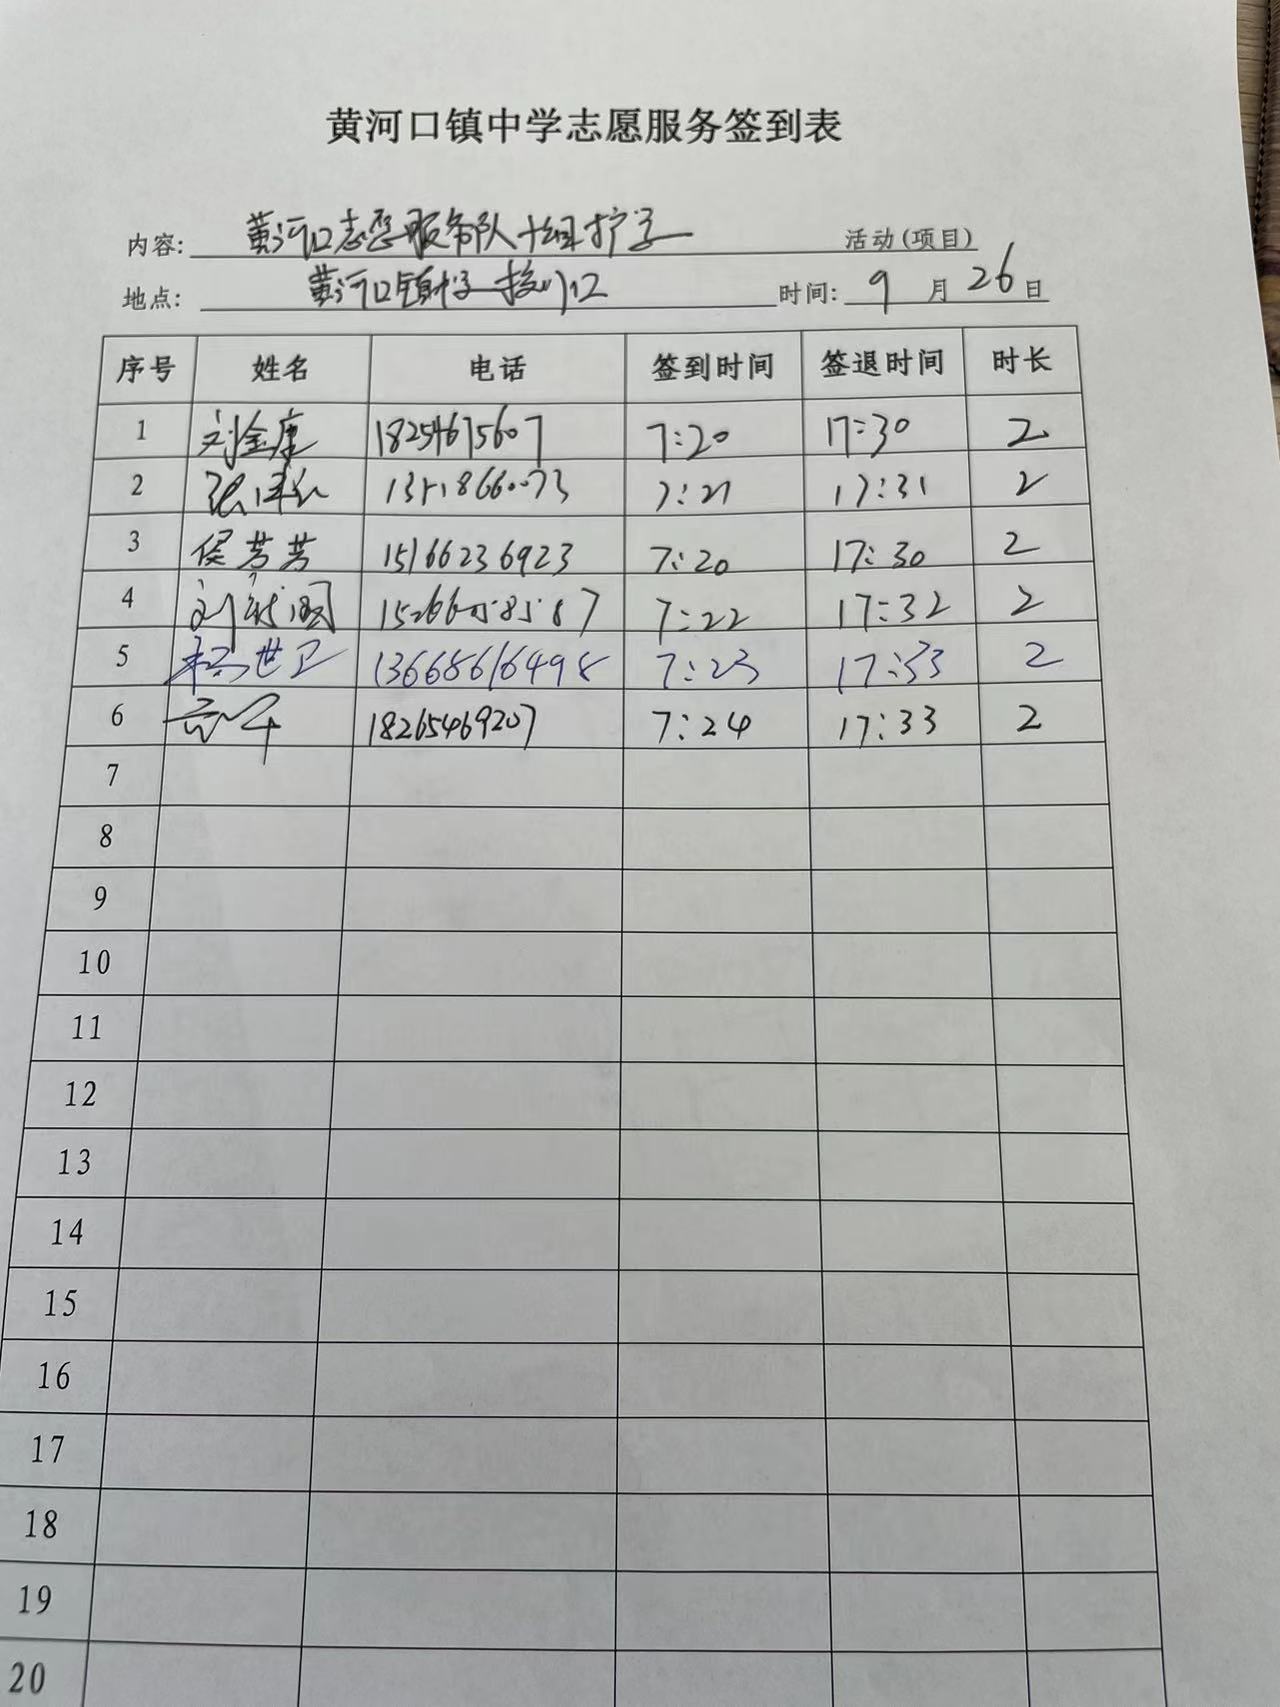 黄河口镇中学志愿服务签到表
内容: 黄河口志愿服务队十组护学 活动(项目)
地点: 黄河口镇中学校门口 时间: 9 月 26 日
序号 姓名 电话 签到时间 签退时间 时长
1 刘金康 18254675607 7:20 17:30 2
2 7:21 17:31 2
3 侯芳芳 15166236923 7:20 17:30 2
4 刘新国 7:22 17:32 2
5 杨世卫 13668616498 7:23 17:33 2
6 18265469207 7:24 17:33 2
7
8
9
10
11
12
13
14
15
16
17
18
19
20